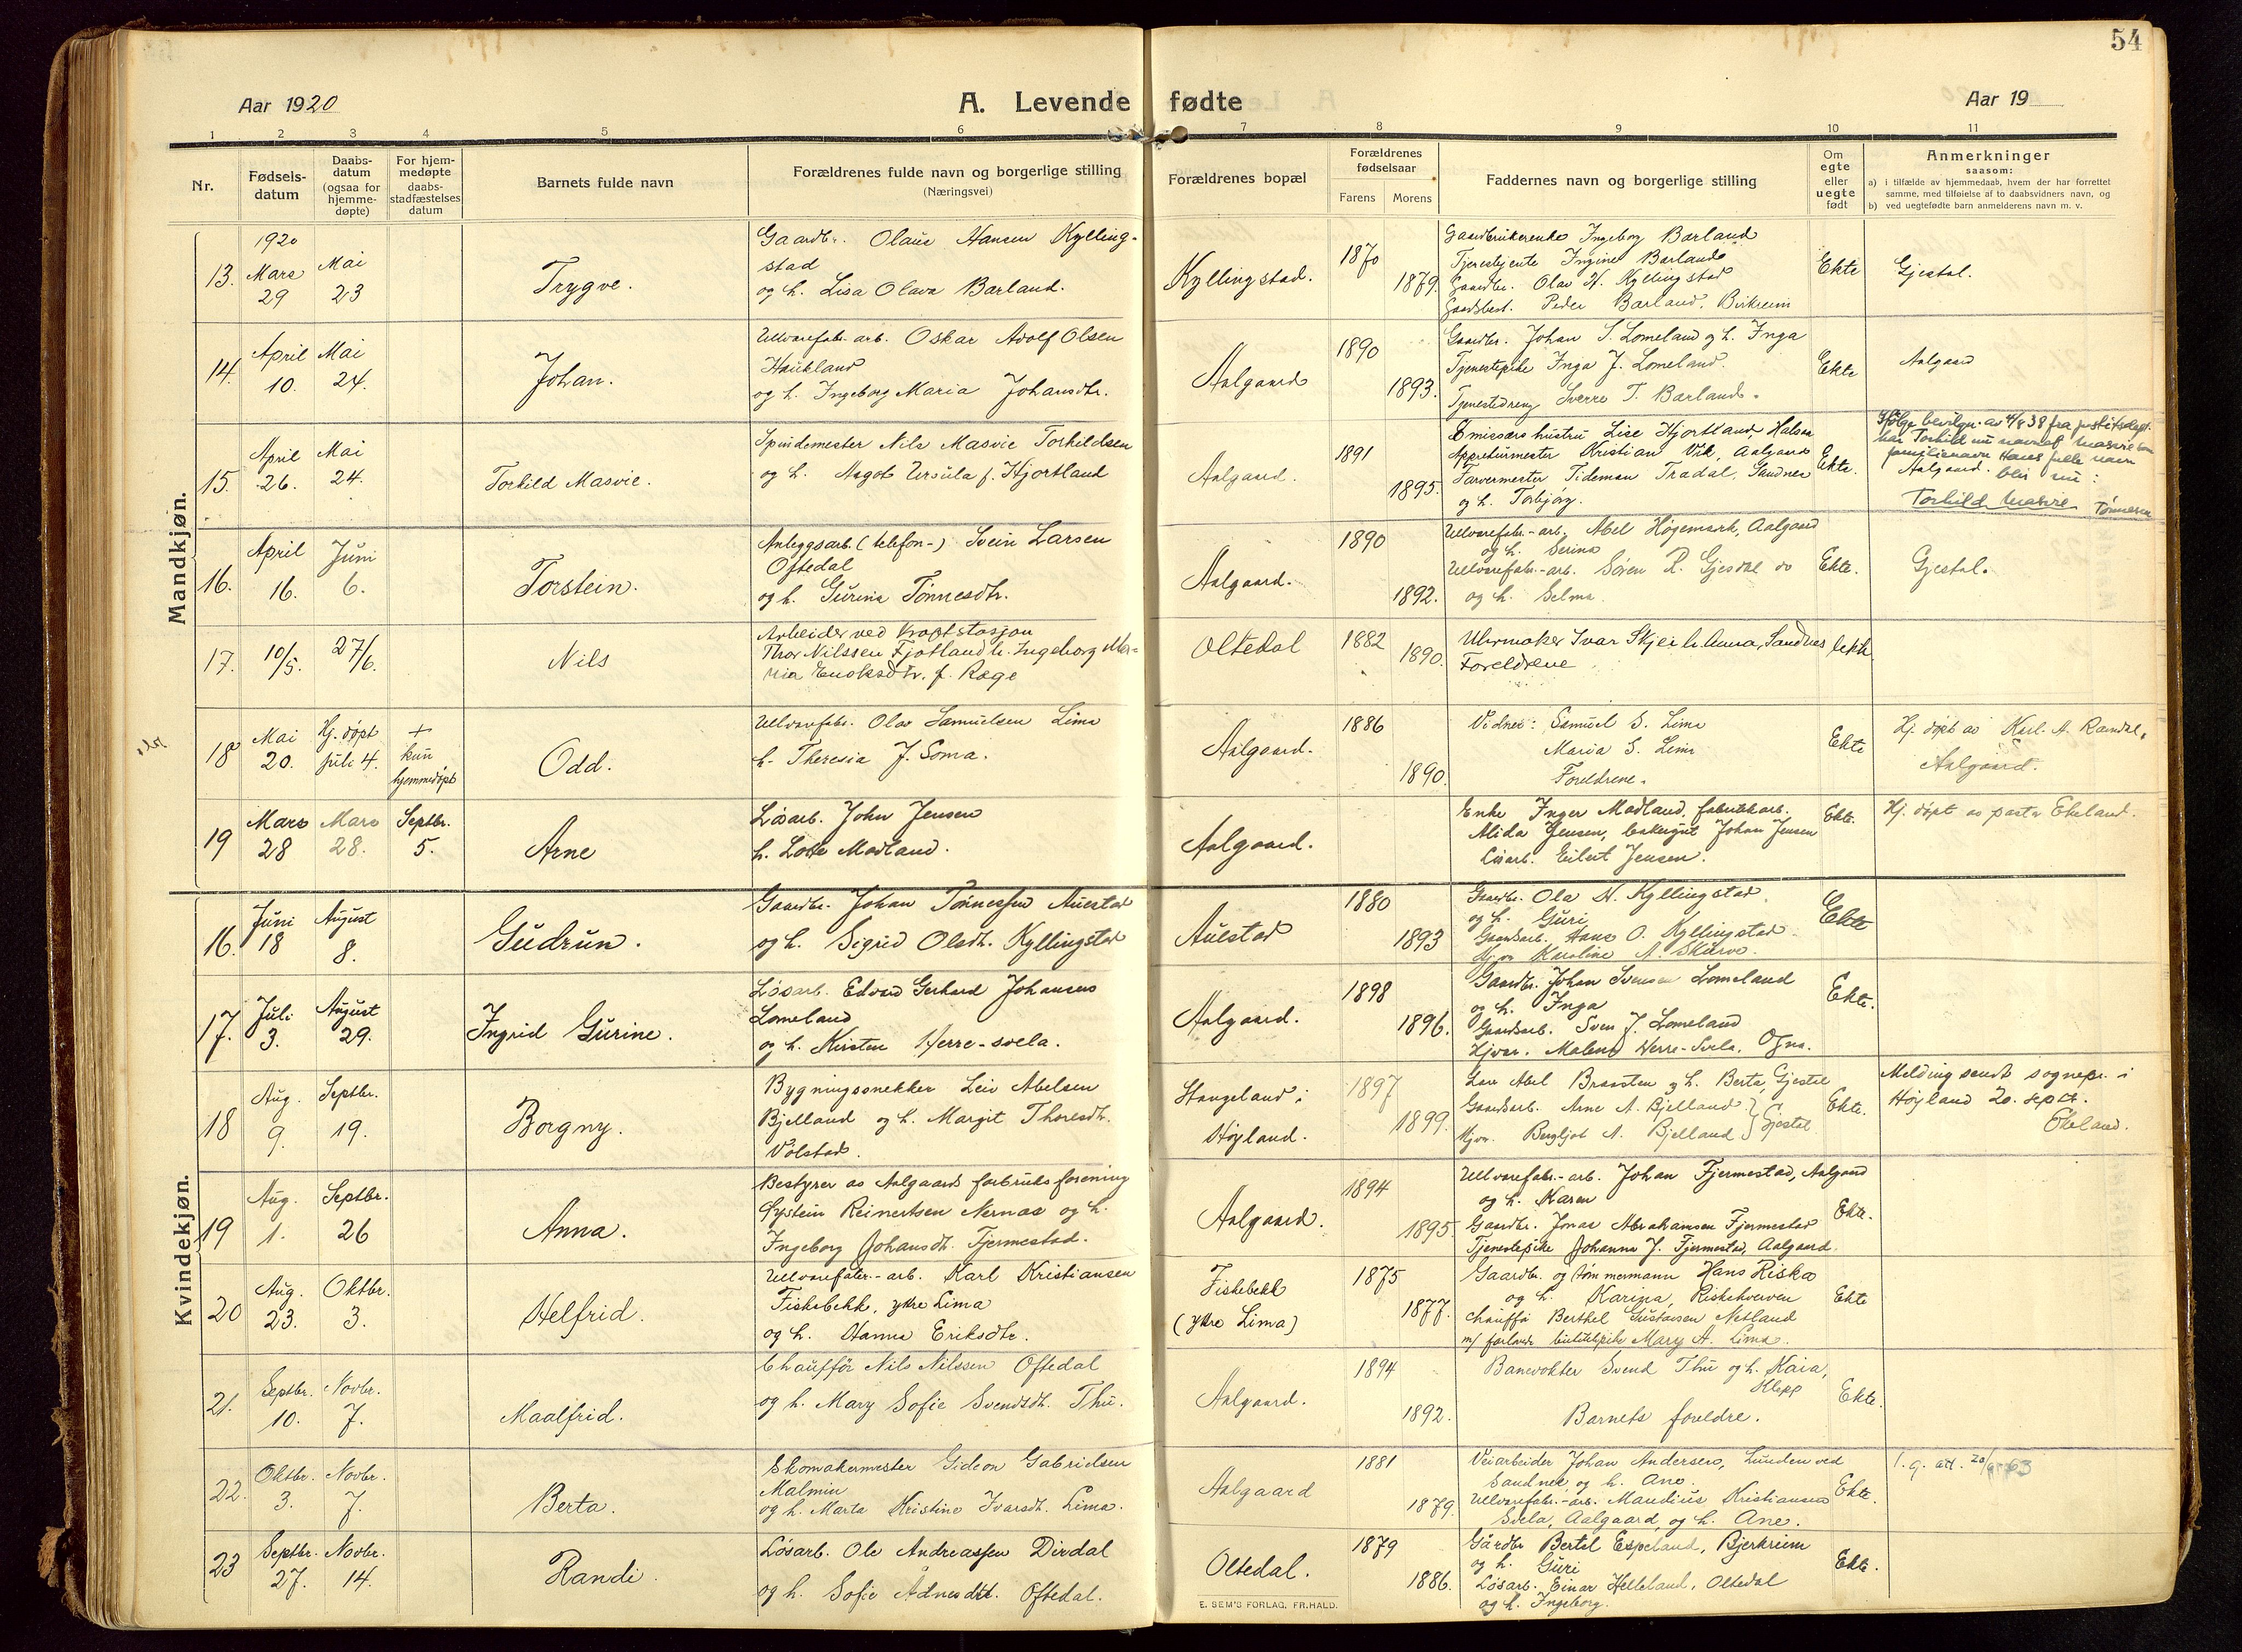 54
Aar 1920
A. Levende fødte
Aar 19
1 2 3 4 5 6 7 8 9 10 11
Nr.
Fødsels-
datum
Daabs-
datum
(ogsaa for
hjemme-
døpte)
For hjem-
medøpte
daabs-
stadfæstelses
datum
Barnets fulde navn
Forældrenes fulde navn og borgerlige stilling
(Næringsvei)
Forældrenes bopæl
Forældrenes
fødselsaar
Farens Morens
Faddernes navn og borgerlige stilling
Om
egte
eller
uegte
født
Anmerkninger
saasom:
a) i tilfælde av hjemmedaab, hvem der har forrettet
samme, med tilføielse af to daabsvidners navn, og
b) ved uegtefødte barn anmelderens navn m. v.
Mandkjøn.
13. 1920 Mars 29 Mai 23
Trygve.
Gaardbr. Olaus Hansen Kylling-
stad
og h. Lisa Olava Barland.
Kyllingstad.
1870
1879.
Gaardbrukerenke Ingeborg Barland
Tjenestjente Ingine Barland
Gaardbr. Olav H. Kyllingstad
Gaardbest. Peder Barland, Birkreim
Ekte
Gjestal.
14. April 10. Mai 24.
Johan.
Uldvarefabr. arb. Oskar Adolf Olsen
Haukland
og h. Ingeborg Maria Johansdtr.
Aalgaard
1890
1893.
Gaardbr. Johan S. Lomeland og h. Inga
Tjenestepike Inga J. Lomeland.
Tjenestedreng Sverre T. Barland.
Ekte
Aalgaard
15. April 26. Mai 24.
Torkild Masvie.
Spindemester Nils Masvie Torkildsen
og h. Aagot Ursula f. Hjortland
Aalgaard.
1891
1895.
Emissærs hustru Lise Hjortland, Halsn
Appreturmester Kristian Vik, Aalgaard
Farvermester Tideman Tradal, Sandnes
og h. Torbjørg.
Ekte.
Ifølge bevilgn. av 4/8 38 fra justitsdept.
har Torkild nu navnet Masvie som
familienavn Hans fulle navn
Aalgaard. blir nu:
Torkild Masvie Tønnesen
16. April 16. Juni 6.
Torstein.
Anleggsarb. (telefon-) Svein Larsen
Oftedal
og h. Gurina Tønnesdtr.
Aalgaard.
1890
1892.
Uldvarefabr.-arb. Abel Høgemark, Aalgaard
og h. Serina
Uldvarefabr.-arb. Søren R. Gjesdal do
og h. Selma.
Ekte.
Gjestal.
17. 10/5. 27/6.
Nils
Arbeider ved kraftstasjon
Thor Nilssen Fjotland h. Ingeborg Ma-
ria Enoksdtr. f. Rage
Oltedal
1882
1890.
Uhrmaker Ivar Skjei h. Anna, Sandnes
Foreldrene
Ekte
18 Mai 20. Hj. døpt juli 4.
+ kun hjemmedøpt
Odd.
Uldvarefabr. Olav Samuelsen Lima
h. Theresia J. Soma.
Aalgaard.
1886
1890.
Vidner: Samuel S. Lima
Maria S. Lima
Foreldrene.
Ekte
Hj. døpt av Karl. A. Ramdal,
Aalgaard.
19 Mars 28 Mars 28. Septbr. 5.
Arne
Løsarb. John Jensen
h. Lotte Madland.
Aalgaard.
Enke Inger Madland, fabrikkarb.
Alida Jensen, Johan Jensen
Løsarb. Eilert Jensen.
Ekte.
Hj. døpt av pastor Ekeland.
Kvindekjøn.
16. Juni 18 August 8.
Gudrun.
Gaardbr. Johan Tønnessen Auestad
og h. Sigrid Olsdtr. Kyllingstad
Auestad
1880
1893
Gaardbr. Ola H. Kyllingstad.
og h. Guri
Gaardsarb. Hans O. Kyllingstad.
Hjv. Karoline A. Skurve.
Ekte
17. Juli 3. August 29.
Ingrid Gurine.
Løsarb. Edvard Gerhard Johansen
Lomeland
og h. Kirsten Herre-svela.
Aalgaard.
1898
1896.
Gaardbr. Johan Svensen Lomeland
og h. Inga
Gaardsarb. Sven J. Lomeland
Hjvær. Malene Herre-Svela, Ogna.
Ekte.
18 Aug. 9. Septbr. 19.
Borgny.
Bygningssnekker Leiv Abelsen
Bjelland og h. Margit Thoresdtr.
Volstad.
Stangeland i
Høyland.
1897
1899.
Abel Braasten og h. Berta, Gjestal
Gaardsarb. Arne A. Bjelland
Hjvr. Bergljot A. Bjelland } Gjestal
Ekte.
Melding sendt sognepr. i
Høyland 20. septr.
Ekeland.
19 Aug. 1. Septbr. 26
Anna.
Bestyrer av Aalgaards forbruksforening
Øystein Reinertsen Nernæs og h.
Ingeborg Johansdtr. Fjermestad.
Aalgaard.
1894
1895
Uldvarefabr.-arb. Johan Fjermestad, Aalgaard
og h. Karen
Gaardbr. Jonas Abrahamsen Fjermestad
Tjenestepike Johanne J. Fjermestad, Aalgaard.
Ekte.
20 Aug. 23. Oktbr. 3.
Helfrid.
Uldvarefabr.-arb. Karl Kristiansen
Fiskebekk, ytre Lima
og h. Hanna Eriksdtr.
Fiskebekk
(ytre Lima)
1875
1877.
Gaardbr. og tømmermann Hans Riska
og h. Karina, Riskekverven
Chauffør Berthel Gustavsen Netland
m/ forlovede Mary A. Lima.
Ekte
21. Septbr. 10. Novbr. 7.
Maalfrid.
Chauffør Nils Nilssen Oftedal
og h. Mary Sofie Svendsdtr. Thu.
Aalgaard.
1894
1892.
Banevokter Svend Thu og h. Kaia,
Klepp
Barnets foreldre.
Ekte.
22. Oktbr. 3. Novbr. 7.
Berta.
Skomakermester Gideon Gabrielsen
Malmin
og h. Marta Kristine Ivarsdtr. Lima.
Aalgaard
1881
1879.
Veiarbeider Johan Andersen, Lunden ved
Sandnes, og h. Ane.
Uldvarefabr.-arb. Maudius Kristiansen
Svela, Aalgaard, og h. Ane.
Ekte.
23 Septbr. 27. Novbr. 14.
Randi.
Løsarb. Ole Andreassen Dirdal
og h. Sofie Ådnesdtr. Oftedal.
Oltedal.
1879
1886.
Gårdbr Bertel Espeland, Bjerkreim
og h. Guri
Løsarb. Einar Helleland, Oltedal
og h. Ingeborg.
Ekte.
E. SEM'S FORLAG, FR.HALD.